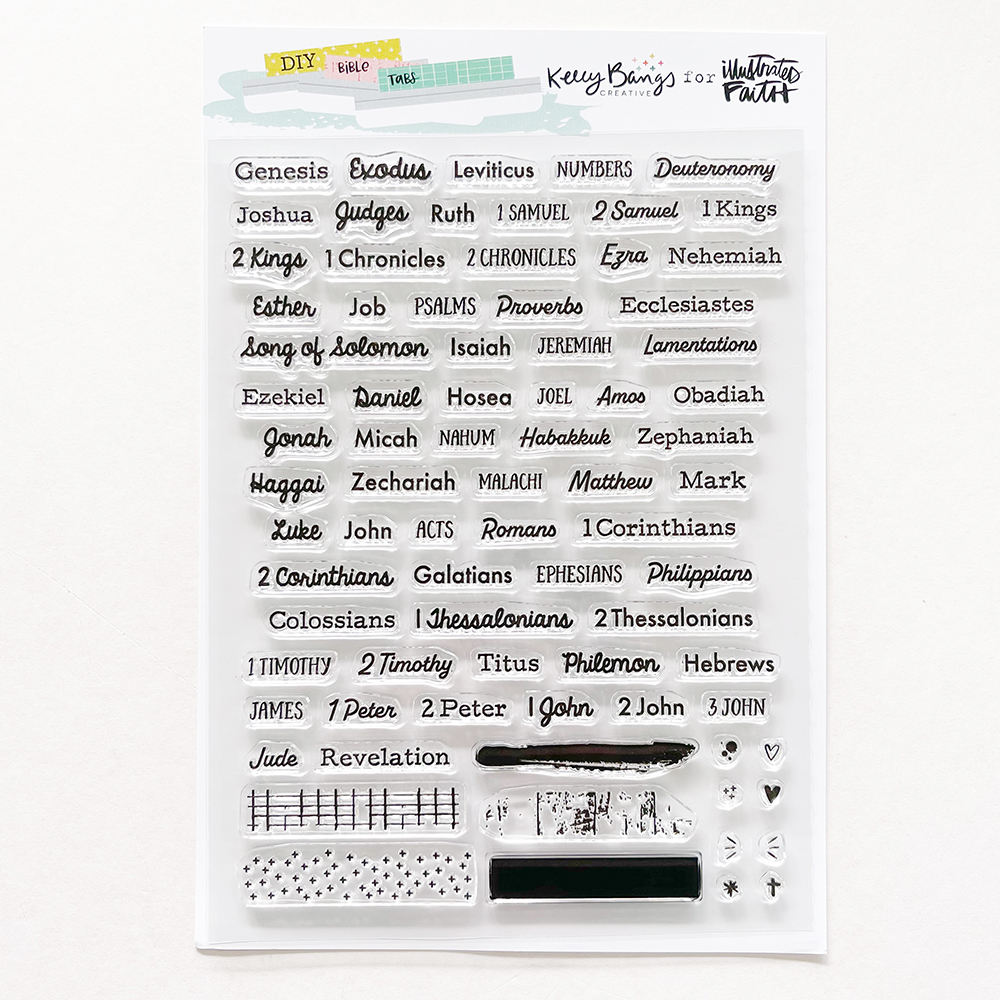 DIY BIBLE TABS
Kelly Bangs for illustrated
CREATIVE FAITH
Genesis Exodus Leviticus NUMBERS Deuteronomy
Joshua Judges Ruth 1 SAMUEL 2 Samuel 1 Kings
2 Kings 1 Chronicles 2 CHRONICLES Ezra Nehemiah
Esther Job PSALMS Proverbs Ecclesiastes
Song of Solomon Isaiah JEREMIAH Lamentations
Ezekiel Daniel Hosea JOEL Amos Obadiah
Jonah Micah NAHUM Habakkuk Zephaniah
Haggai Zechariah MALACHI Matthew Mark
Luke John ACTS Romans 1 Corinthians
2 Corinthians Galatians EPHESIANS Philippians
Colossians 1 Thessalonians 2 Thessalonians
1 TIMOTHY 2 Timothy Titus Philemon Hebrews
JAMES 1 Peter 2 Peter 1 John 2 John 3 JOHN
Jude Revelation